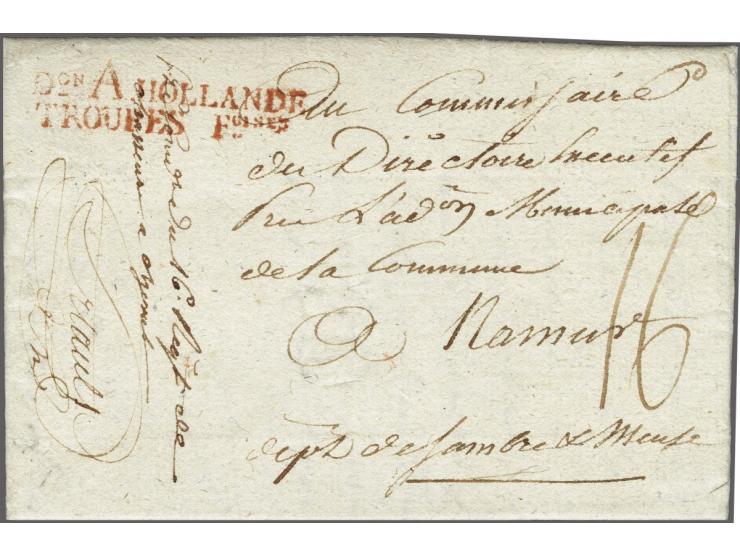 Don A HOLLANDE
TROUPES Foises
Du Commissaire
du Directoire Executif
Près L'adon Municipale
de la Commune
a Namur
dept de Sambre & Meuse
16
du 16e Regt de